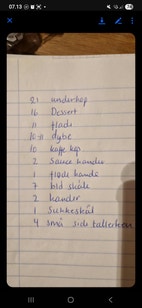 07.13
21 underkop
16 Dessert
11 flade
10-11 dybe
10 kaffe kop
2 Sauce kander
1 fløde kande
7 blå skåle
2 kander
1 Sukkeskål
4 små side tallerkener